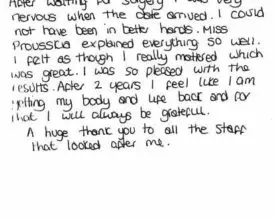 After waiting for surgery I was very
nervous when the date arrived. I could
not have been in better hands. Miss
explained everything so well.
I felt as though I really mattered which
was great. I was so pleased with the
results. After 2 years I feel like I am
getting my body and life back and for
that I will always be grateful.
A huge thank you to all the staff
that looked after me.